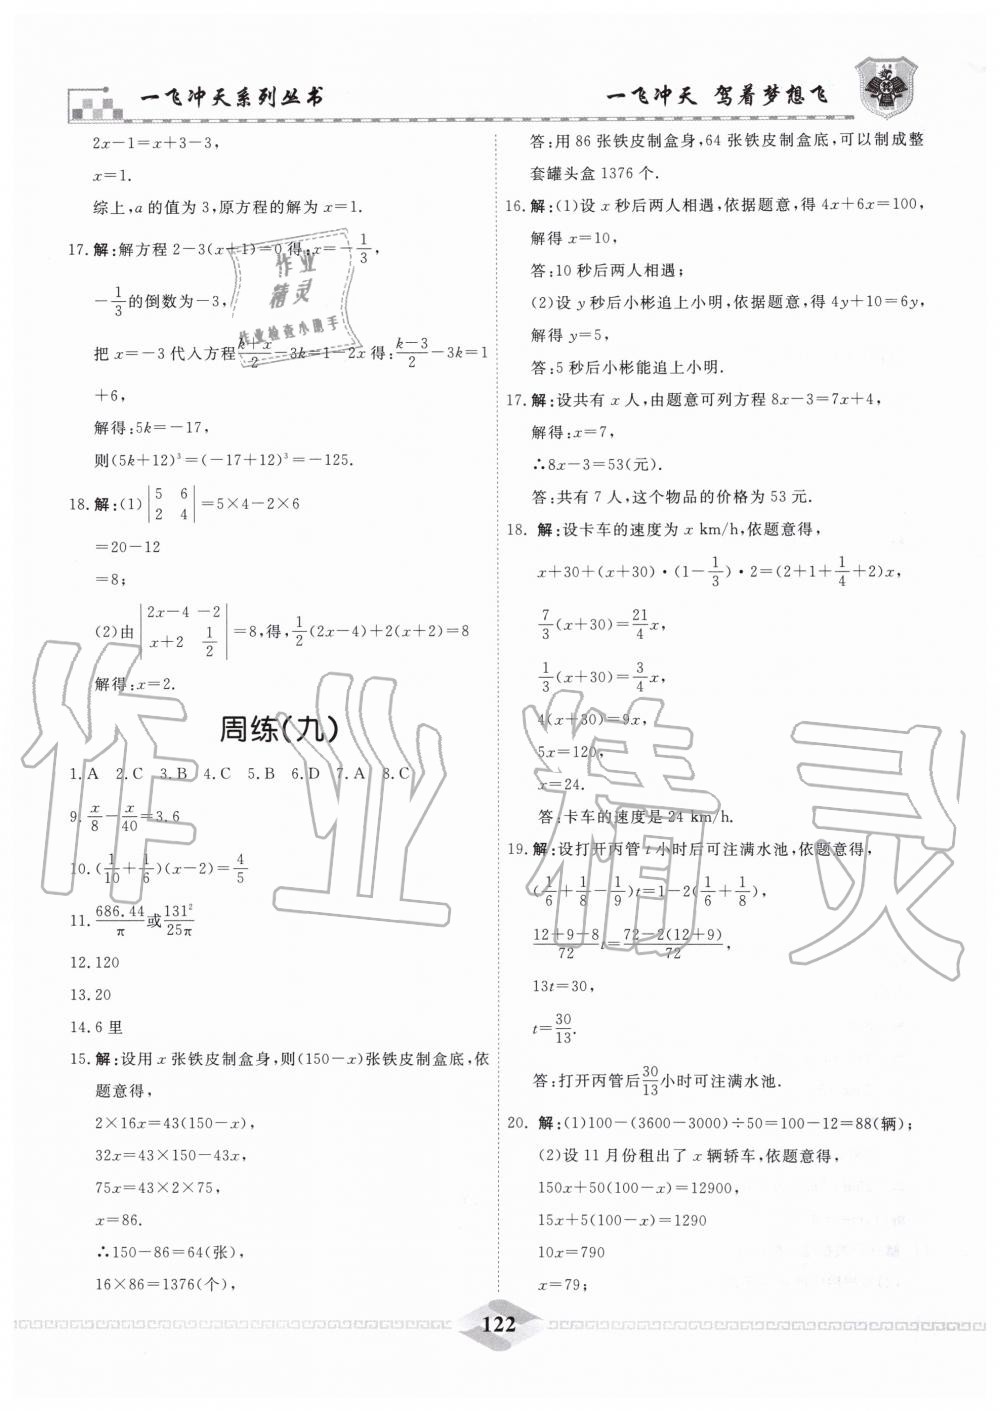 一飞冲天系列丛书
一飞冲天 驾着梦想飞
2x－1=x+3－3,
x=1.
综上,a 的值为 3,原方程的解为 x=1.
17. 解:解方程 2－3(x+1)=0 得:x=－1/3,
－1/3的倒数为－3,
把 x=－3 代入方程(k+x)/2－3k=1－2x 得:(k－3)/2－3k=1
+6,
解得:5k=－17,
则(5k+12)³=(－17+12)³=－125.
18. 解:(1)|5 6
2 4|=5×4－2×6
=20－12
=8;
(2)由|2x－4 －2
x+2 1/2|=8,得,1/2(2x－4)+2(x+2)=8
解得:x=2.
周练(九)
1. A 2. C 3. B 4. C 5. B 6. D 7. A 8. C
9. x/8－x/40=3.6
10. (1/10+1/6)(x－2)=4/5
11. 686.44/π或131²/25π
12. 120
13. 20
14. 6 里
15. 解:设用 x 张铁皮制盒身,则(150－x)张铁皮制盒底,依
题意得,
2×16x=43(150－x),
32x=43×150－43x,
75x=43×2×75,
x=86.
∴150－86=64(张),
16×86=1376(个),
答:用 86 张铁皮制盒身,64 张铁皮制盒底,可以制成整
套罐头盒 1376 个.
16. 解:(1)设 x 秒后两人相遇,依据题意,得 4x+6x=100,
解得 x=10,
答:10 秒后两人相遇;
(2)设 y 秒后小彬追上小明,依据题意,得 4y+10=6y,
解得 y=5,
答:5 秒后小彬能追上小明.
17. 解:设共有 x 人,由题意可列方程 8x－3=7x+4,
解得:x=7,
∴8x－3=53(元).
答:共有 7 人,这个物品的价格为 53 元.
18. 解:设卡车的速度为 x km/h,依题意得,
x+30+(x+30)·(1－1/3)·2=(2+1+1/4+2)x,
7/3(x+30)=21/4x,
1/3(x+30)=3/4x,
4(x+30)=9x,
5x=120,
x=24.
答:卡车的速度是 24 km/h.
19. 解:设打开丙管 t 小时后可注满水池,依题意得,
(1/6+1/8－1/9)t=1－2(1/6+1/8),
(12+9－8)/72 t=(72－2(12+9))/72,
13t=30,
t=30/13.
答:打开丙管后30/13小时可注满水池.
20. 解:(1)100－(3600－3000)÷50=100－12=88(辆);
(2)设 11 月份租出了 x 辆轿车,依题意得,
150x+50(100－x)=12900,
15x+5(100－x)=1290
10x=790
x=79;
122
作业
精灵
作业检查小助手
作业精灵